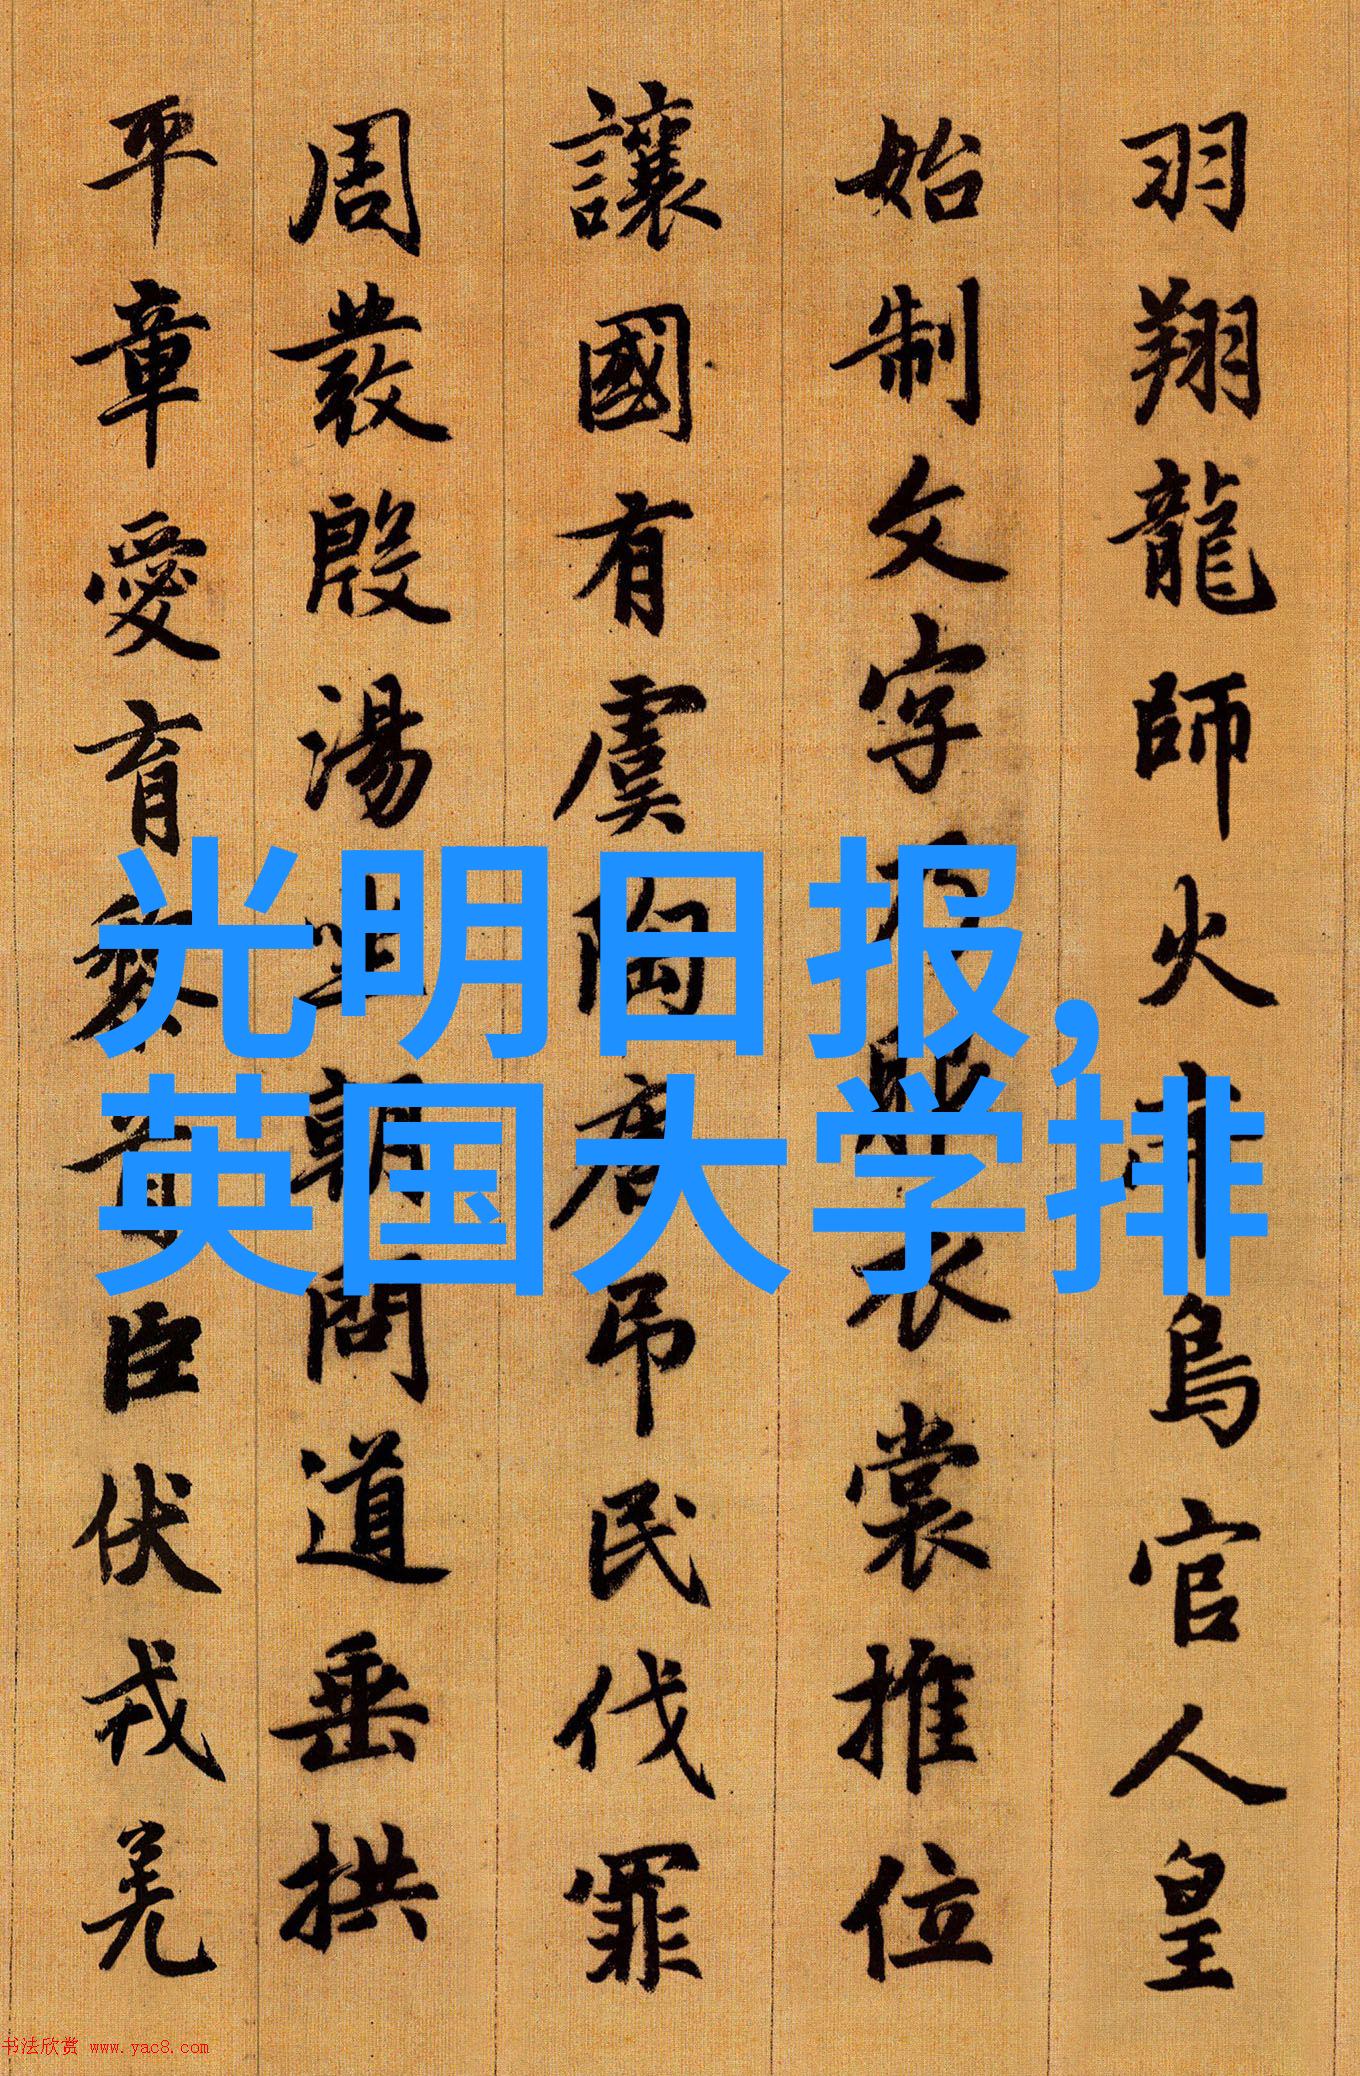 羽翔龍師火帝鳥官人皇
始制文字乃服衣裳推位
讓國有虞陶唐吊民伐罪
周發殷湯坐朝問道垂拱
平章愛育黎首臣伏戎羌
光明日报,
英国大学排
书法欣赏 www.yac8.com